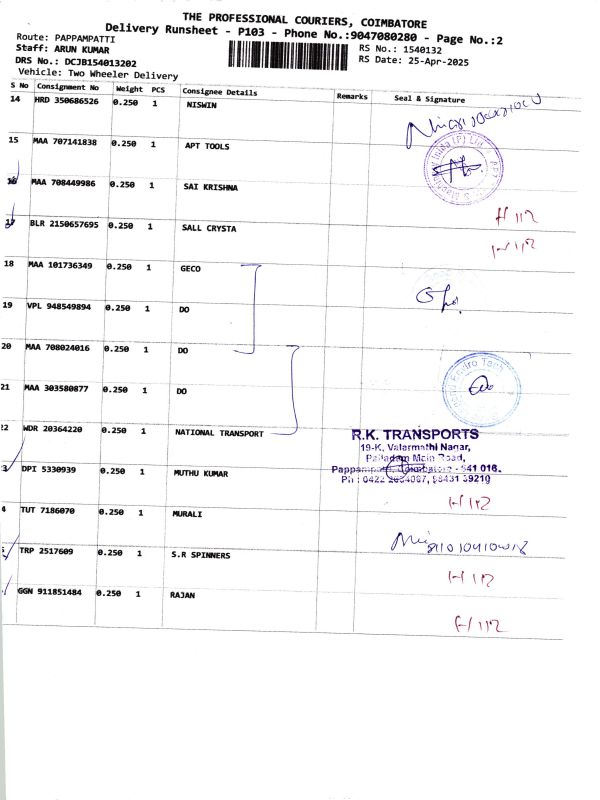 THE PROFESSIONAL COURIERS, COIMBATORE
Delivery Runsheet - P103 - Phone No.:9047080280 - Page No.:2
Route: PAPPAMPATTI
RS No.: 1540132
Staff: ARUN KUMAR
RS Date: 25-Apr-2025
DRS No.: DCJB154013202
Vehicle: Two Wheeler Delivery
S No Consignment No Weight PCS Consignee Details Remarks Seal & Signature
14 HRD 350686526 0.250 1 NISWIN
15 MAA 707141838 0.250 1 APT TOOLS
16 MAA 708449986 0.250 1 SAI KRISHNA
17 BLR 2150657695 0.250 1 SALL CRYSTA
18 MAA 101736349 0.250 1 GECO
19 VPL 948549894 0.250 1 DO
20 MAA 708024016 0.250 1 DO
Enviro Tech
21 MAA 303580877 0.250 1 DO
22 WDR 20364220 0.250 1 NATIONAL TRANSPORT
R.K. TRANSPORTS
19-K, Valarmathi Nagar,
Palladam Main Road,
3 DPI 5330939 0.250 1 MUTHU KUMAR
Coimbatore - 641 016.
4 TUT 7186070 0.250 1 MURALI
TRP 2517609 0.250 1 S.R SPINNERS
GGN 911851484 0.250 1 RAJAN